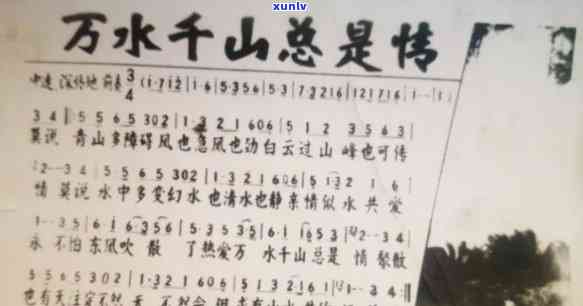 xunlv
万水千山总是情
中速 深情地 前奏 3/4 (i·7i2|i·6|5·356|5·3|7·3216|1217i6|i--|i)
3 4|5 5 6 5 302|1·3 2 1 606|5 1 2 3 5 6 3|
莫说 青山多障碍风也急风也劲白云过山 峰也可传
2--3 4|5 5 6 5 302|1·3 2 1 606|5 1·3 2 1 6|
情 莫说 水中多变幻水也清水也静柔情似水共爱
1--3 5|6·i 6·3 5 6|5·3 5 3 5|6·i i 6 5 3|2--3 4|
永 不怕东风吹 散 了热爱万 水千山总是 情 聚散
5 5 6 5 302|1·3 2 1 606|
也有天注定不怨天 不怨命 但求有山水